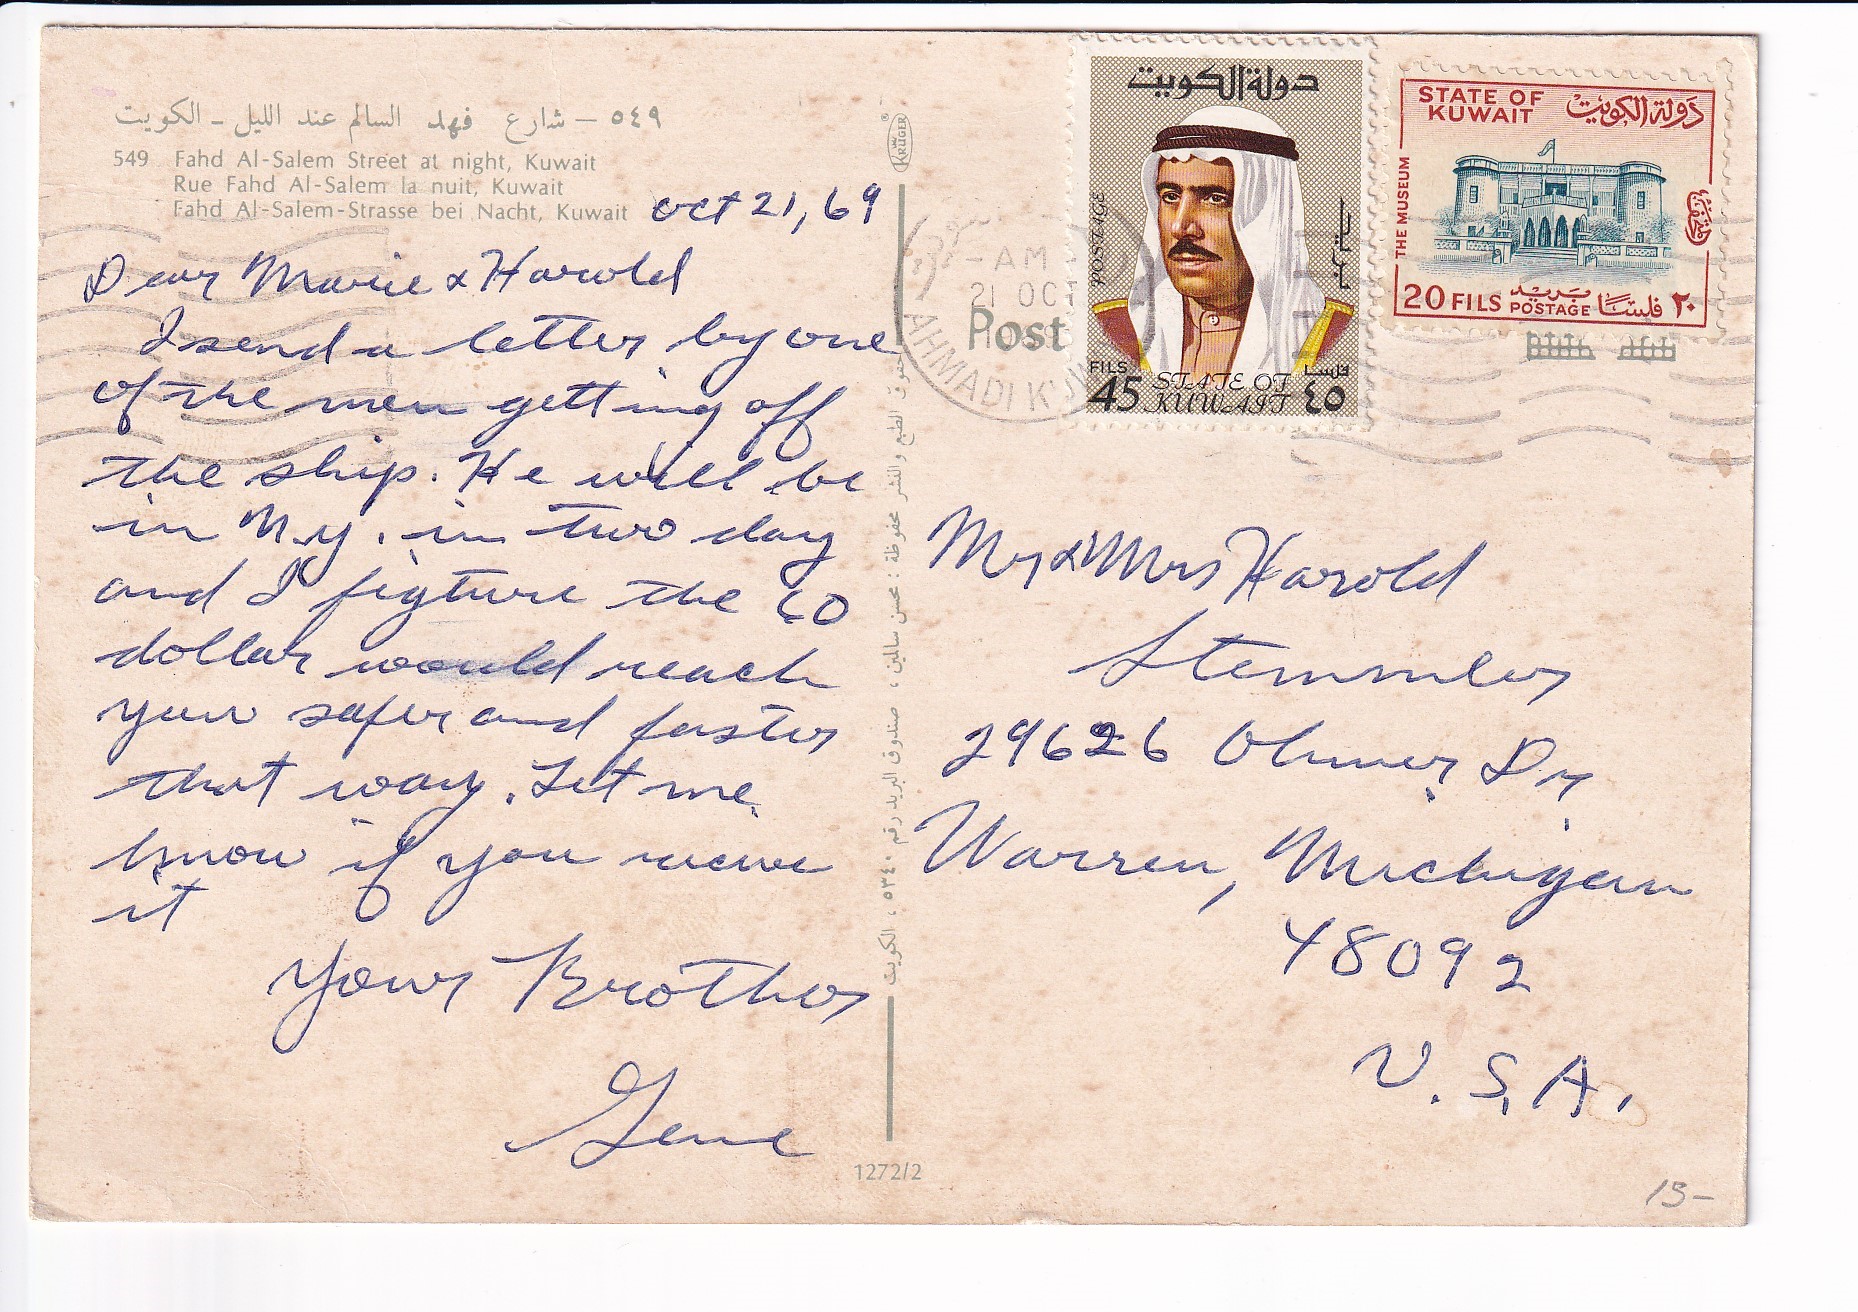 ٥٤٩ – شارع فهد السالم عند الليل – الكويت
549 Fahd Al-Salem Street at night, Kuwait
Rue Fahd Al-Salem la nuit, Kuwait
Fahd Al-Salem-Strasse bei Nacht, Kuwait
Oct 21, 69
Dear Marie & Harold
I send a letter by one
of the men getting off
the ship. He will be
in N.y. in two day
and I figture the 60
dollar would reach
your safer and faster
that way. Let me
know if you
it
Your Brother
Gene
KRÜGER
®
حقوق الطبع والنشر محفوظة : محسن سالمين ، صندوق البريد رقم ٥٣٤٠ ، الكويت
1272/2
Post
AM
21 OCT
AHMADI KU
دولة الكويت
POSTAGE
FILS
45
STATE OF
KUWAIT
فلسا
٤٥
STATE OF
KUWAIT
دولة الكويت
THE MUSEUM
المتحف
20 FILS
بريد
POSTAGE
فلسا ٢٠
Mr & Mrs Harold
Stemmler
29626 Olmer Dr
Warren, Michigan
48092
U.S.A.
15-